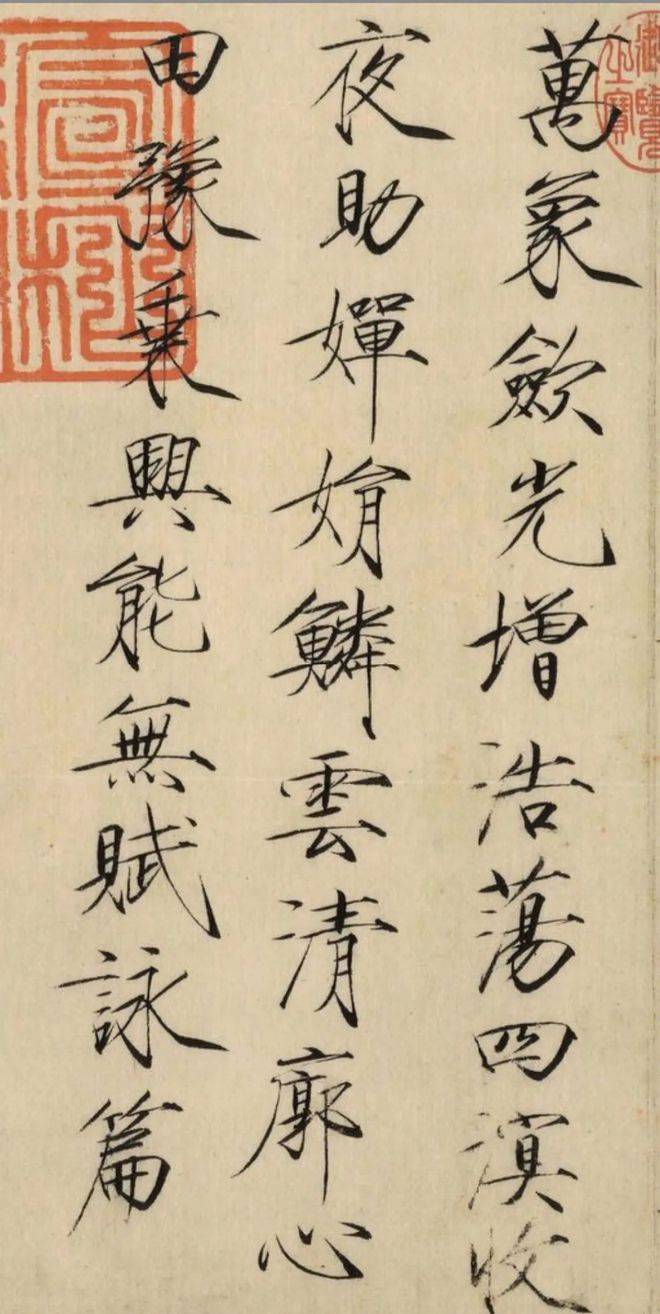 御覽
之寶
萬象歛光增浩蕩四溟收
夜助嬋娟鱗雲清廓心
田豫乘興能無賦詠篇